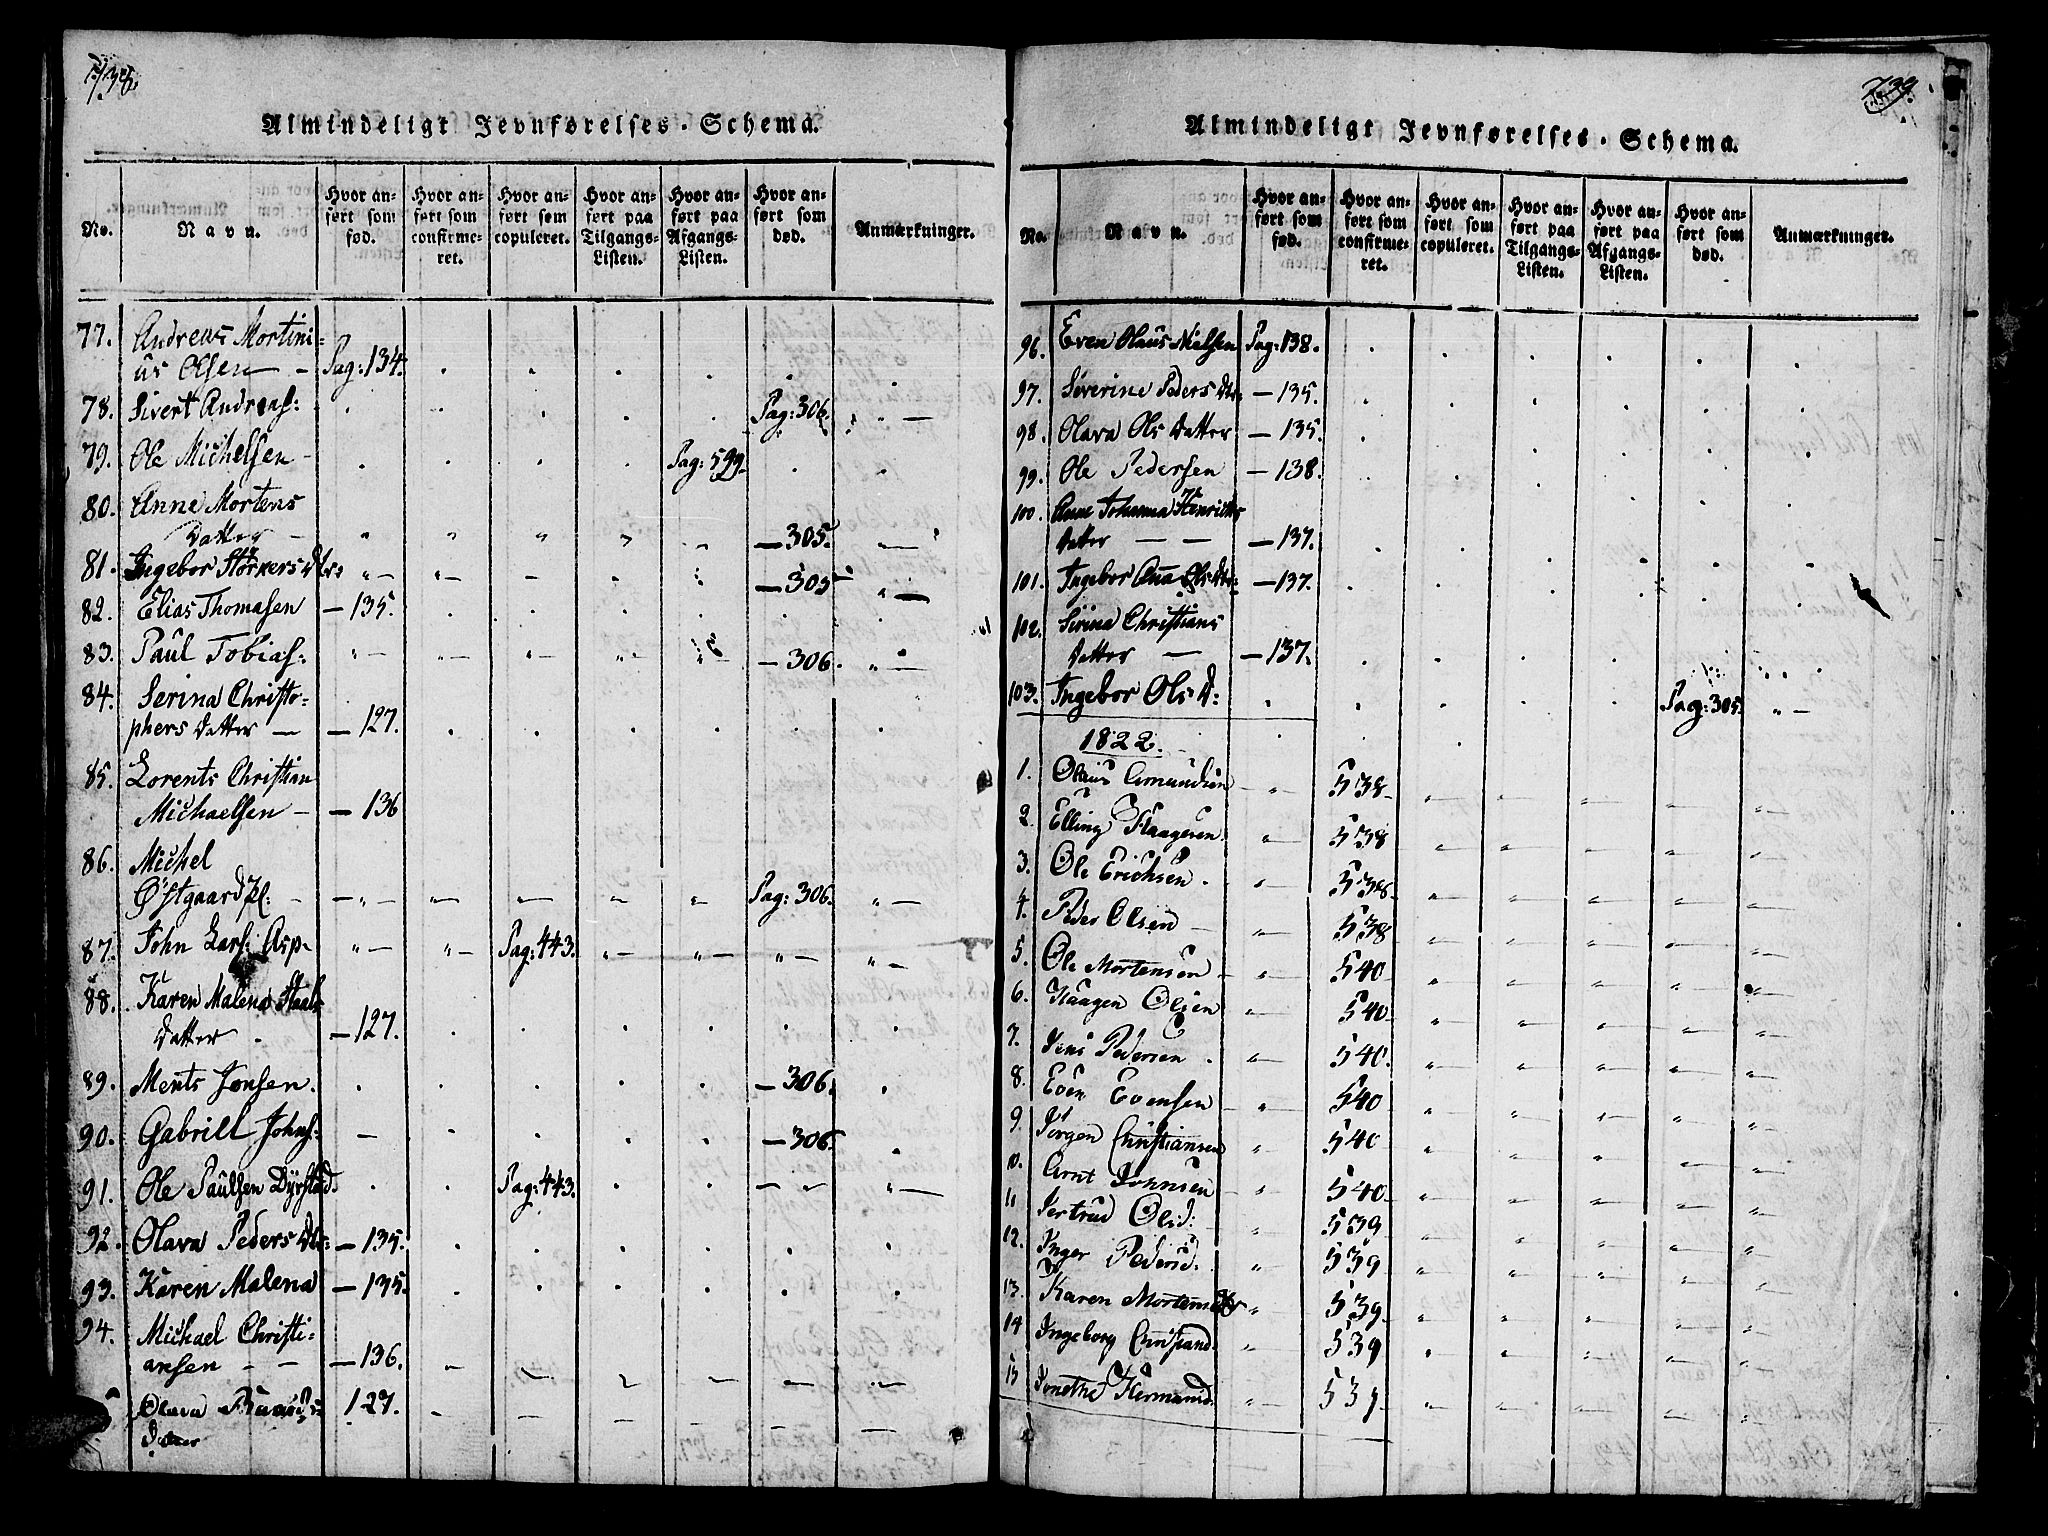 738.
Almindeligt Jevnførelses-Schema.
No. Navn. Hvor anført som fød. Hvor anført som confirmeret. Hvor anført som copuleret. Hvor anført paa Tilgangs-Listen. Hvor anført paa Afgangs-Listen. Hvor anført som død. Anmærkninger.
77. Andreas Mortini-
us Olsen — Pag: 134.
78. Sivert Andreas: Pag: 306.
79. Ole Michelsen — Pag: 599.
80. Anne Mortens
Datter — — 305.
81. Ingebor Størkers Dtr: — 305
82. Elias Thomasen — 135.
83. Paul Tobias: — 306.
84. Serina Christo-
phers Datter — — 127.
85. Lorents Christian
Michaelsen — — 136
86. Michel
Østgaardpl: Pag: 306.
87. John Lars: Asp. Pag: 443.
88. Karen Malena
Datter — 127.
89. Ments Jonsen. — 306.
90. Gabriell Johns: — 306.
91. Ole Paulsen Dyrstad. Pag: 443.
92. Olava Peders Dtr: — 135.
93. Karen Malena — 135.
94. Michael Christi-
ansen — — 136.
Olava 127.
Datter
739.
Almindeligt Jevnførelses-Schema.
No. Navn. Hvor anført som fød. Hvor anført som confirmeret. Hvor anført som copuleret. Hvor anført paa Tilgangs-Listen. Hvor anført paa Afgangs-Listen. Hvor anført som død. Anmærkninger.
96. Even Olaus Nielsen Pag: 138.
97. Severine Peders Dtr: — 135.
98. Olava Ols Datter — 135.
99. Ole Pedersen — 138.
100. Anne Johanna Henrichs
Datter — — — 137.
101. Ingebor Ana Ols Dtr: — 137.
102. Sirina Christians
Datter — — 137.
103. Ingebor Ols D: Pag: 305.
1822.
1. Olaus Amundsen 538
2. Elling Haagesen. 538
3. Ole Erichsen. 538
4. Peder Olsen — 538
5. Ole Mortensen 540
6. Haagen Olsen 540
7. Jens Pedersen . 540.
8. Even Evensen 540
9. Jørgen Christiansen 540
10. Arnt Johnsen 540
11 Gertrud Olsd: 539
12. Inger Pedersd. 539
13. Karen Mortensdtr 539.
14 Ingeborg Christiansd. 539
15 Hermansd. 539